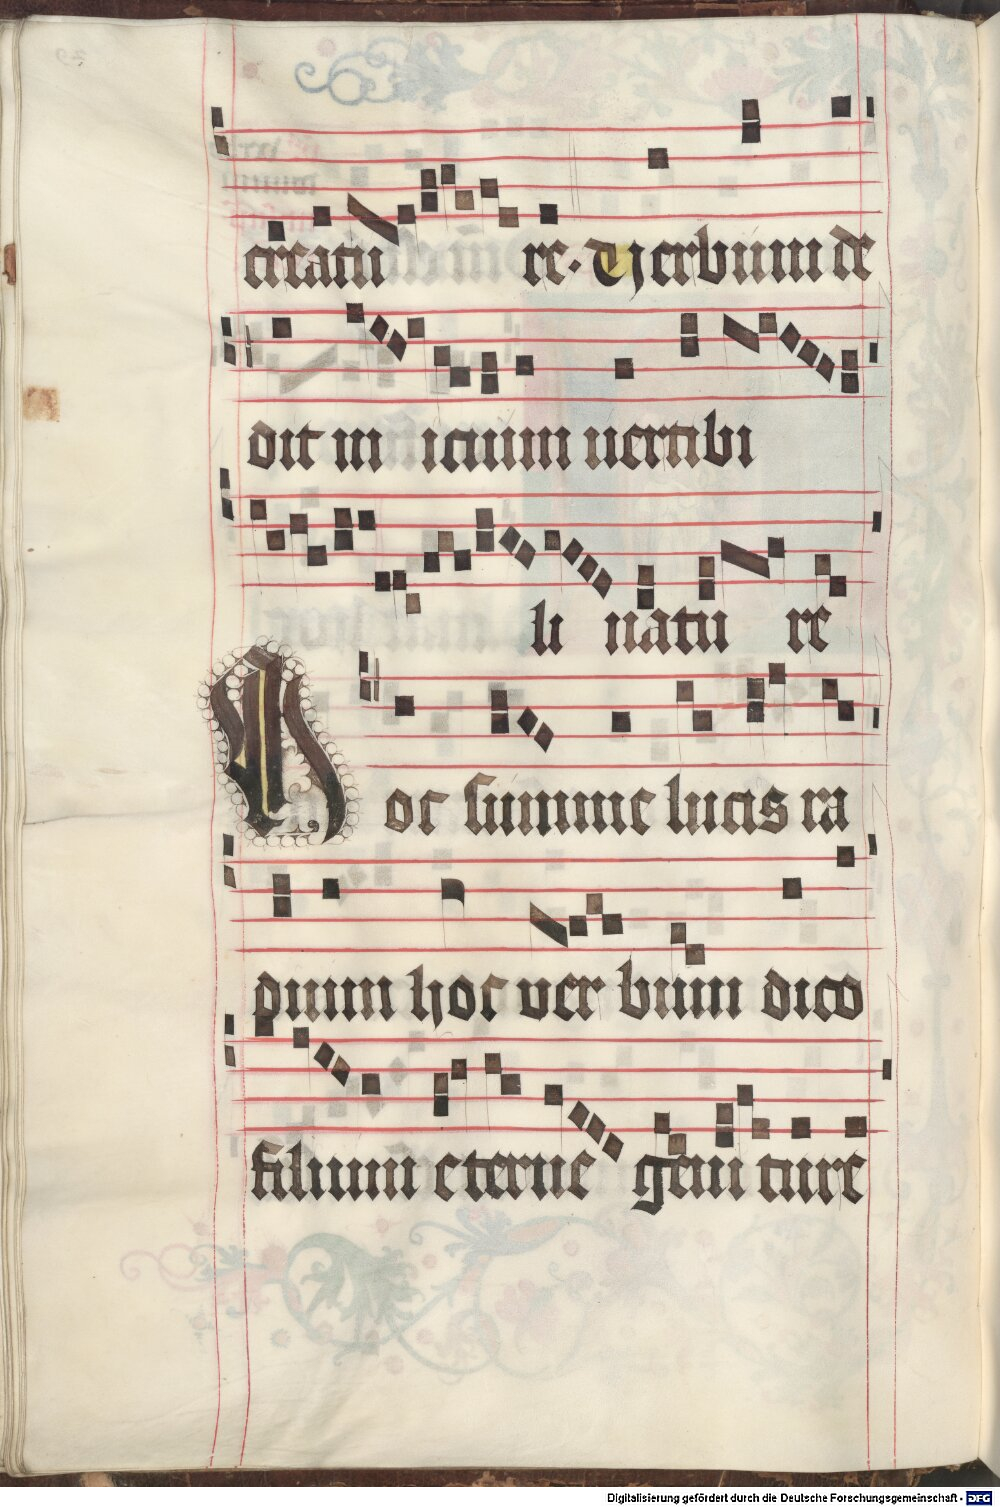 creatu re. Verbum de
dit in icium uertibi
li natu re
Hoc summe lucis ra
dium hoc ver bum dico
filium eterne geni ture
Digitalisierung gefördert durch die Deutsche Forschungsgemeinschaft - DFG